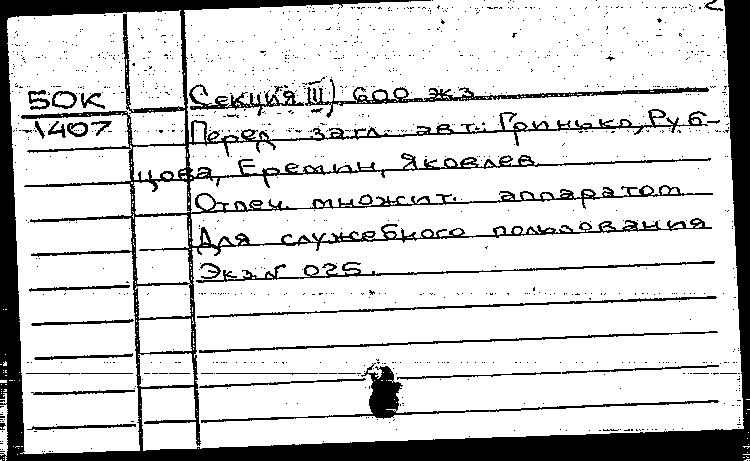 2
БОК
1407
Секция III) 600 экз
Перед загл. авт.: Гринько, Руб-
цова, Еремин, Яковлев
Отпеч. множит. аппаратом
Для служебного пользования
Экз.N 025.